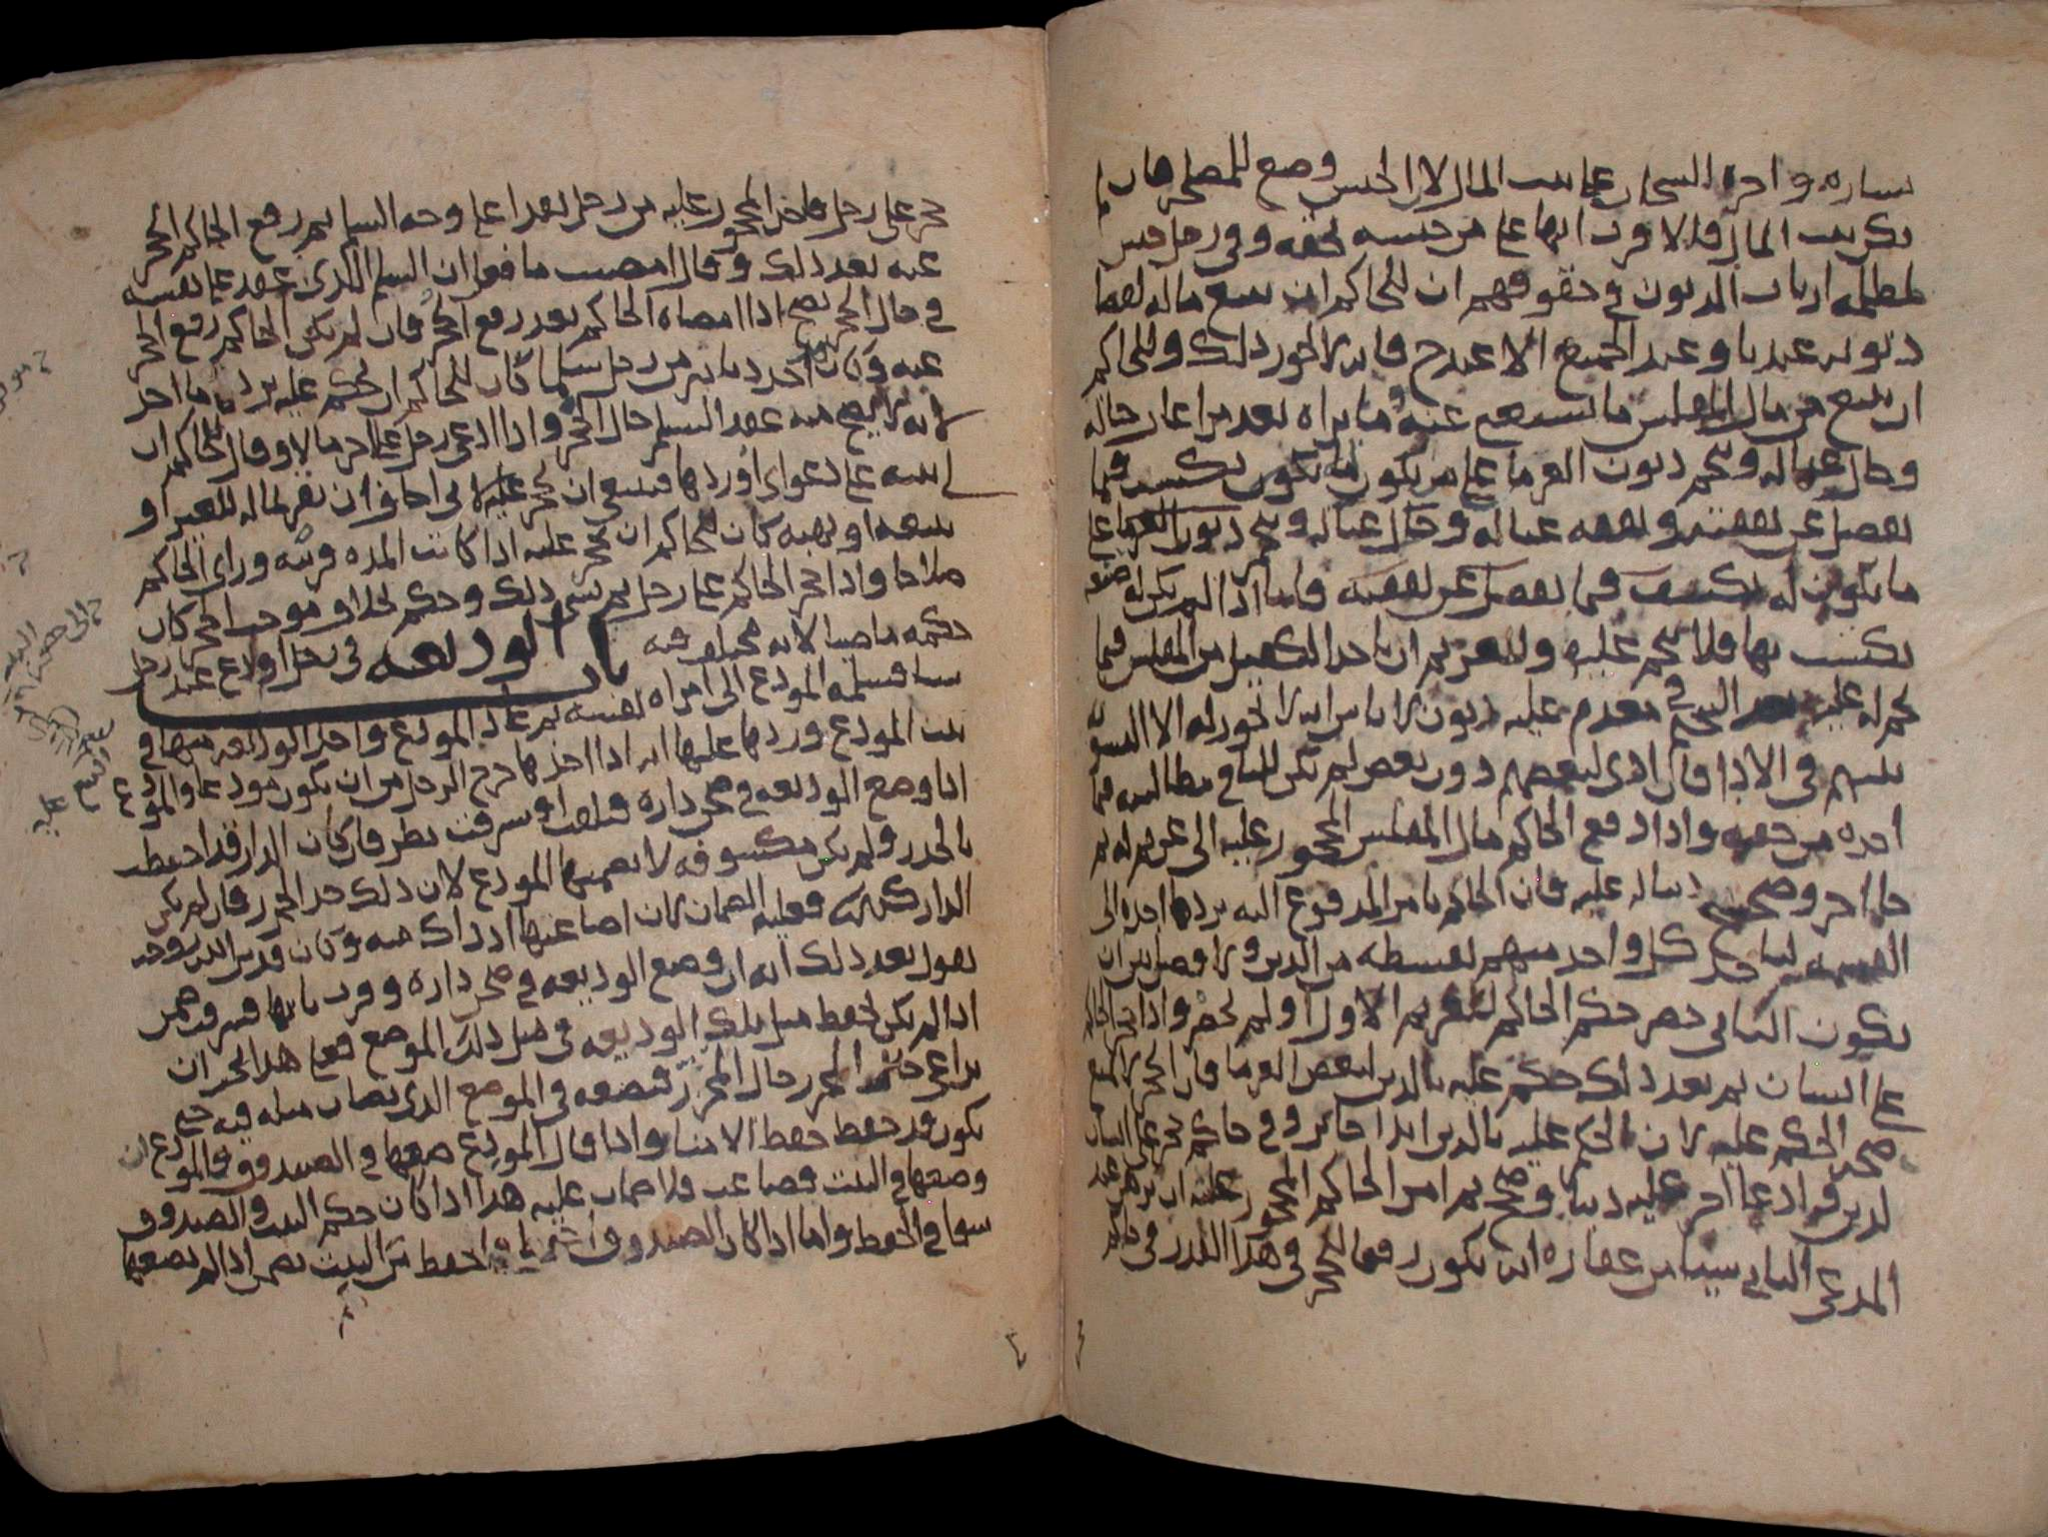 يساره واجرة السجان على بيت المال لان الحبس وضع للمصلحة فان لم
يكن بيت المال فالاقرب انها على من حبسه بحقه وفي رجل حبس
لمطله ارباب الديون في حقوقهم ان للحاكم ان يبيع ماله لقضا
ديونه عندنا وعند الجميع الا عند ح فانه لا يجوز ذلك وللحاكم
ان يبيع من مال المفلس ما يستغنى عنه وما يراه بعد مراعاة حاله
وحال عياله وينجم ديون الغرما على من يكون له ما يكون يكتسب فيما
يفضل عن نفقته ونفقة عياله وحال عياله وينجم ديون الغرما على
ما يكون له يكتسب فيما يفضل عن نفقته فاما اذا لم يكن له
يكتسب بها فلا ينجم عليه وللغريم ان ياخذ الكفيل من المفلس فيما
نجم له عليه في مقدم عليه ديون لاناس انه لا يجوز له الا التسوية
بينهم في الادا فان ادى لبعضهم دون بعض لم يكن للباقي مطالبته فيما
اخذه من حقه واذا دفع الحاكم مال المفلس المحجور عليه الى غريم له ثم
جا اخر وصحح دينا له عليه فان الحاكم يامر المدفوع اليه برد ما اخذه الى
القسمة لياخذ كل واحد منهم بقسطه من الدين ولا فصل بين ان
يكون الثاني حضر حكم الحاكم للغريم الاول او لم يحضر واذا حجر الحاكم
على انسان ثم بعد ذلك حكم عليه بالدين لبعض الغرما فان الحجر لا يمنع
صحة الحكم عليه لان الحكم عليه بالدين ابدا جائز وفي حاكم حجر على انسان
لدين فادعا اخر عليه دينا وصح ثم امر الحاكم المحجور عليه ان يرهن عند
المدعي الثاني شيئا من عقاره انه يكون رفعا للحجر في هذا القدر في حكم
حجر على رجل فاخذ المحجور عليه من رجل نقدا على وجه السلم ثم رفع الحاكم الحجر
عنه بعد ذلك وقال امضيت ما فعل ان السلم الذي عقد على نفسه
في حال الحجر يصح اذا امضاه الحاكم بعد رفع الحجر فان لم يكن الحاكم رفع الحجر
عنه وكان اخذ دنانير من رجل سلما كان للحاكم ان يحكم عليه برد ما اخذ
لانه لا يصح منه عقد السلم حال الحجر واذا ادعى رجل على اخر مالا وقال للحاكم ان
ابينه على دعواى اوردها فينبغي ان تحجر عليه لاني اخاف ان يقر بماله للغير او
يبيعه او يهبه كان للحاكم ان يحجر عليه اذا كانت المدة قريبة وراى الحاكم
صلاحا واذا حجر الحاكم على رجل ثم نسي ذلك وحكم بخلاف موجب الحجر كان
حكمه ماضيا لانه مختلف فيه
باب الوديعة في رجل اودع عند رجل
شيا فسلمه المودع الى امراة لفسه ثم عاد المودع واخذ الوديعة منها في
بيت المودع وردها عليها انه اذا اخذها خرج الرجل من ان يكون مودعا والمودع
اذا وضع الوديعة في صحن داره فتلفت او سرقت نظر فان كان الدار قد احيطت
بالجدر ولم يكن مكشوفة لا يضمنها المودع لان ذلك حد الحرز فان لم يكن
الدار كذلك فعليه الضمان لانه اضاعتها اذ ذاك منه وكان قدس الله روحه
يقول بعد ذلك انه ان وضع الوديعة في صحن داره وورد بابها فسرقت ضمن
اذا لم يكن يحفظ مثل تلك الوديعة في مثل ذلك الموضع فعلى هذا يجب ان
يراعى حال المحرز حال المحرز فيضعه في الموضع الذي يصان مثله فيه حتى
يكون قد حفظ حفظ الامنا واذا قال المودع ضعها في الصندوق فالمودع ان
وضعها في البيت فضاعت فلا ضمان عليه هذا اذا كان حكم البيت والصندوق
سوا في الحفظ واما اذا كان الصندوق احفظ من البيت يضمن اذا لم يضعها